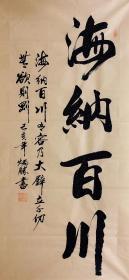 海納百川
海納百川有容乃大壁立千仞
無欲則剛 己亥年 炳勝書